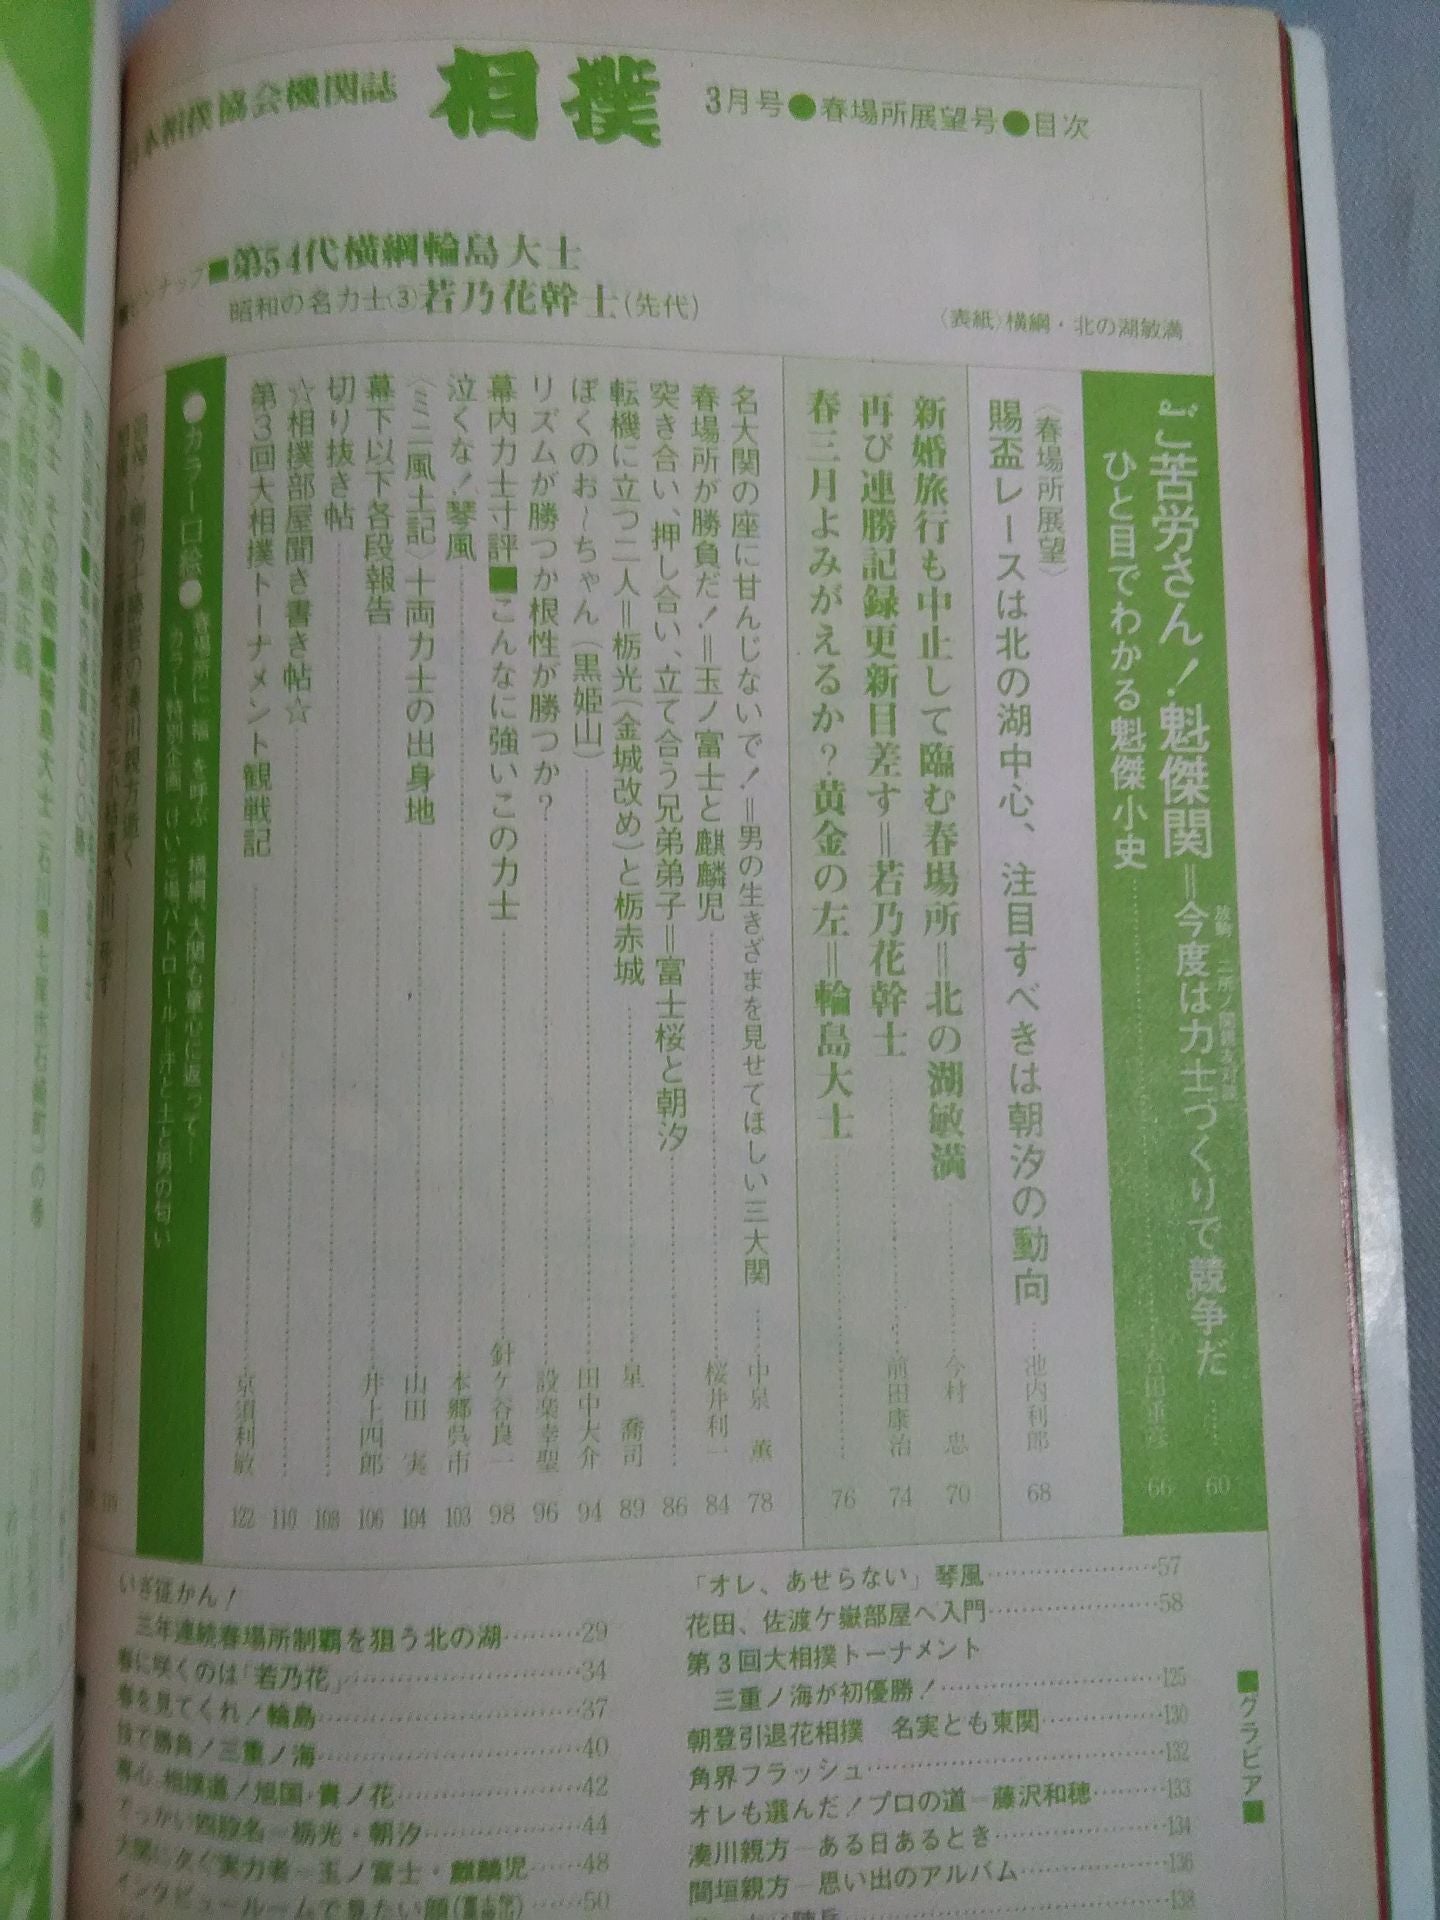 相撲協会機関誌 相撲 3月号●春場所展望号●目次
■第54代横綱輪島大士
昭和の名力士(3)若乃花幹士(先代)
〈表紙〉横綱・北の湖敏満
ご苦労さん!魁傑関=今度は力士づくりで競争だ……60
ひと目でわかる魁傑小史……66
〈春場所展望〉
賜盃レースは北の湖中心、注目すべきは朝汐の動向……池内利郎 68
新婚旅行も中止して臨む春場所=北の湖敏満……今村 忠 70
再び連勝記録更新目差す=若乃花幹士……前田康治 74
春三月よみがえるか?黄金の左=輪島大士……76
名大関の座に甘んじないで!=男の生きざまを見せてほしい三大関……中泉 薫 78
春場所が勝負だ!=玉ノ富士と麒麟児……桜井利一 84
突き合い、押し合い、立て合う兄弟弟子=富士桜と朝汐……86
転機に立つ二人=栃光(金城改め)と栃赤城……星 喬司 89
ぼくのお〜ちゃん(黒姫山)……田中大介 94
リズムが勝つか根性が勝つか?……設楽幸聖 96
幕内力士寸評■こんなに強いこの力士……針ケ谷良一 98
泣くな!琴風……本郷呉市 103
〈ミニ風土記〉十両力士の出身地……山田 実 104
幕下以下各段報告……井上四郎 106
切り抜き帖……108
☆相撲部屋聞き書き帖☆……110
第3回大相撲トーナメント観戦記……京須利敏 122
●カラー口絵●
春場所に“福”を呼ぶ 横綱、大関も童心に返って…
カラー特別企画 けいこ場パトロール=汗と土と男の匂い
■グラビア■
「オレ、あせらない」琴風……57
花田、佐渡ケ嶽部屋へ入門……58
第3回大相撲トーナメント
三重ノ海が初優勝!……125
朝登引退花相撲 名実とも東関……130
角界フラッシュ……132
オレも選んだ!プロの道―藤沢和穂……133
湊川親方―ある日あるとき……134
間垣親方―思い出のアルバム……136
138
いざ征かん!
三年連続春場所制覇を狙う北の湖……29
春に咲くのは「若乃花」……34
春を見てくれ!輪島……37
技で勝負!三重ノ海……40
相撲道!旭国・貴ノ花……42
でっかい四股名―栃光・朝汐……44
大関に次ぐ実力者―玉ノ富士・麒麟児……48
インタビュールームで見たい顔……50